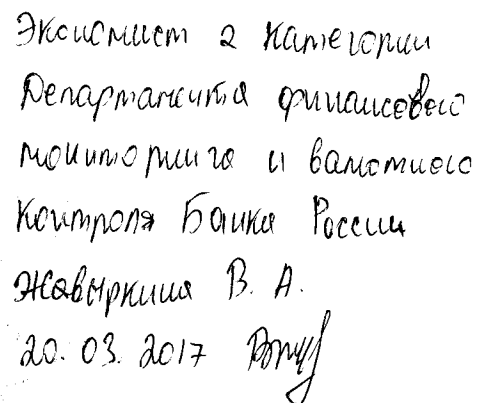 Экономист 2 категории
Департамента финансового
мониторинга и валютного
контроля Банка России
Жавыркина В. А.
20. 03. 2017